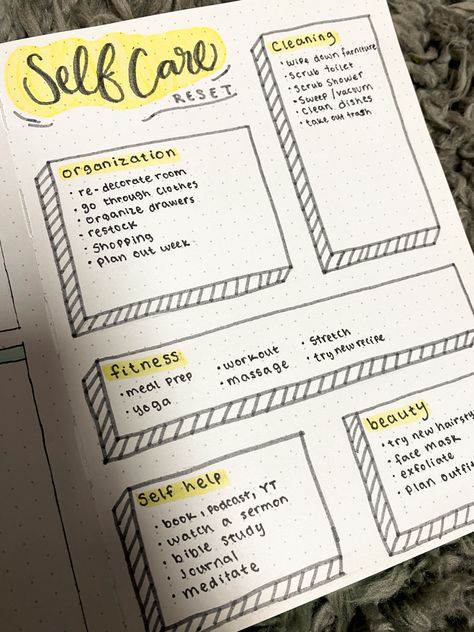 Self Care
RESET
Cleaning
• wipe down furniture
• scrub toilet
• scrub shower
• sweep/vacuum
• clean dishes
• take out trash
organization
• re-decorate room
• go through clothes
• organize drawers
• restock
• shopping
• plan out week
fitness
• meal prep
• yoga
• workout
• massage
• stretch
• try new recipe
beauty
• try new hairsty
• face mask
• exfoliate
• plan outfi
self help
• book, podcast, YT
• watch a sermon
• bible study
• journal
• meditate